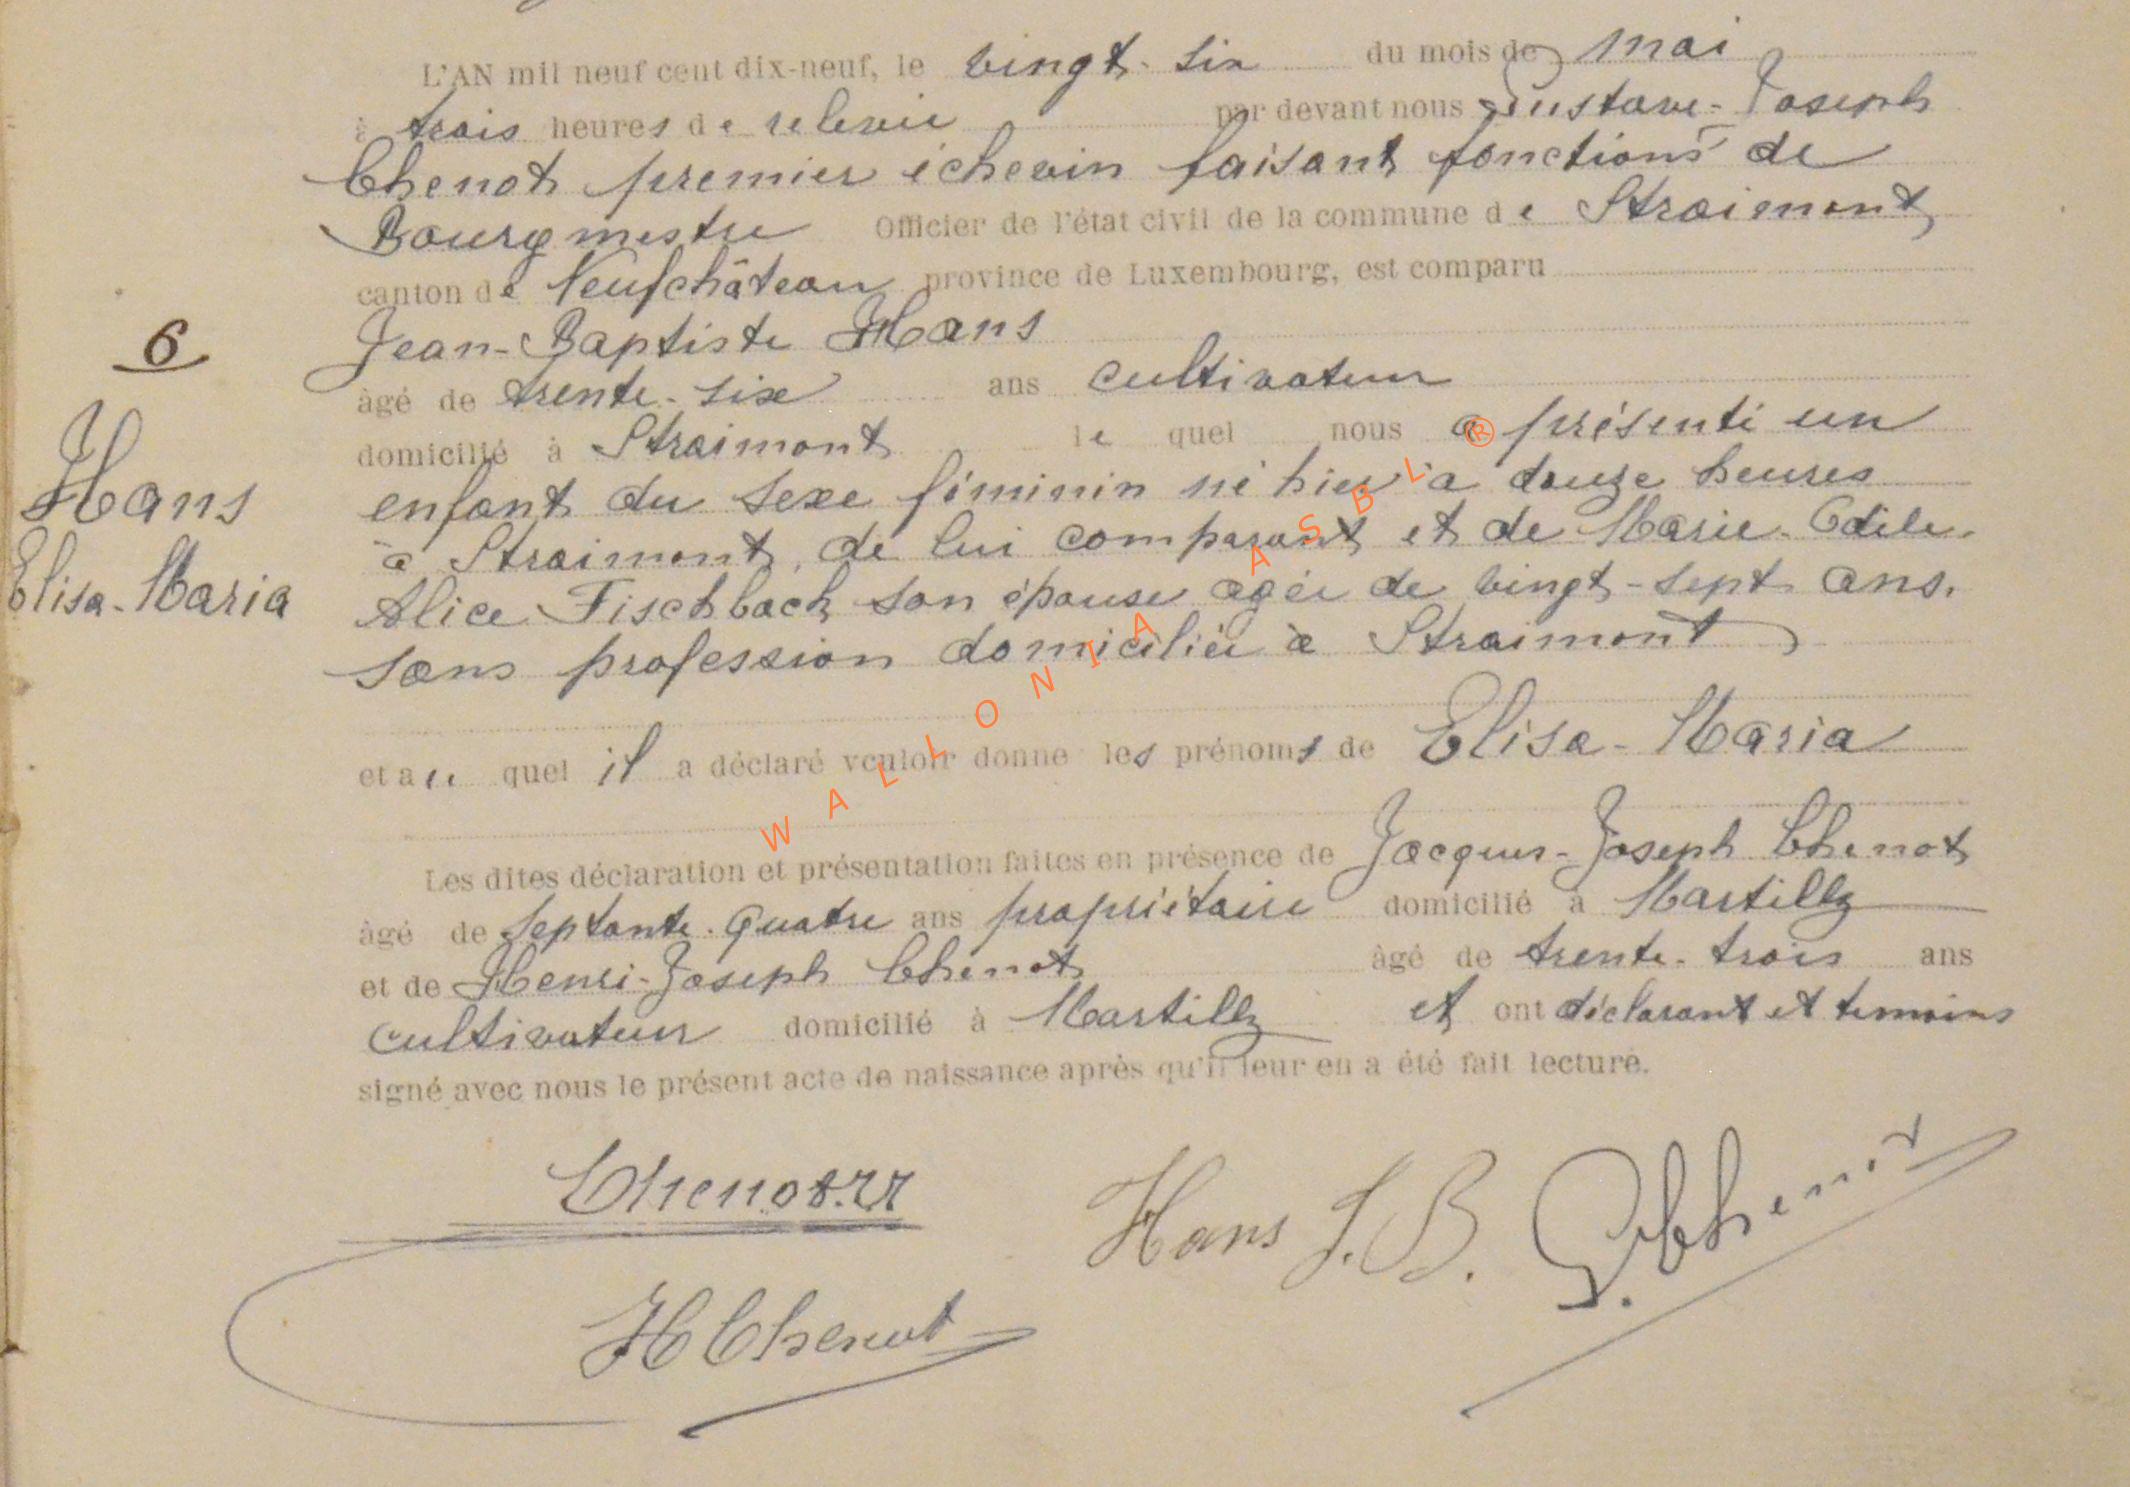 L'AN mil neuf cent dix-neuf, le vingt-six du mois de mai
à trois heures de relevée par devant nous Gustave-Joseph
Chenot premier échevin faisant fonctions de
Bourgmestre Officier de l'état civil de la commune de Straimont
canton de Neufchâteau province de Luxembourg, est comparu
6
Jean-Baptiste Hans
âgé de trente-six ans cultivateur
domicilié à Straimont le quel nous a présenté un
Hans
enfant du sexe féminin né hier à douze heures
à Straimont, de lui comparant et de Marie-Odile-
Elisa-Maria
Alice Fischbach son épouse agée de vingt-sept ans.
sans profession domiciliée à Straimont
et au quel il a déclaré vouloir donne les prénoms de Elisa-Maria
Les dites déclaration et présentation faites en présence de Jacques-Joseph Chenot
âgé de septante-quatre ans propriétaire domicilié à Martilly
et de Henri-Joseph Chenot âgé de trente-trois ans
cultivateur domicilié à Martilly et ont déclarant et témoins
signé avec nous le présent acte de naissance après qu'il leur en a été fait lecture.
Chenot.JJ
Hans J.B.
HChenot
WALLONIA ASBL ®